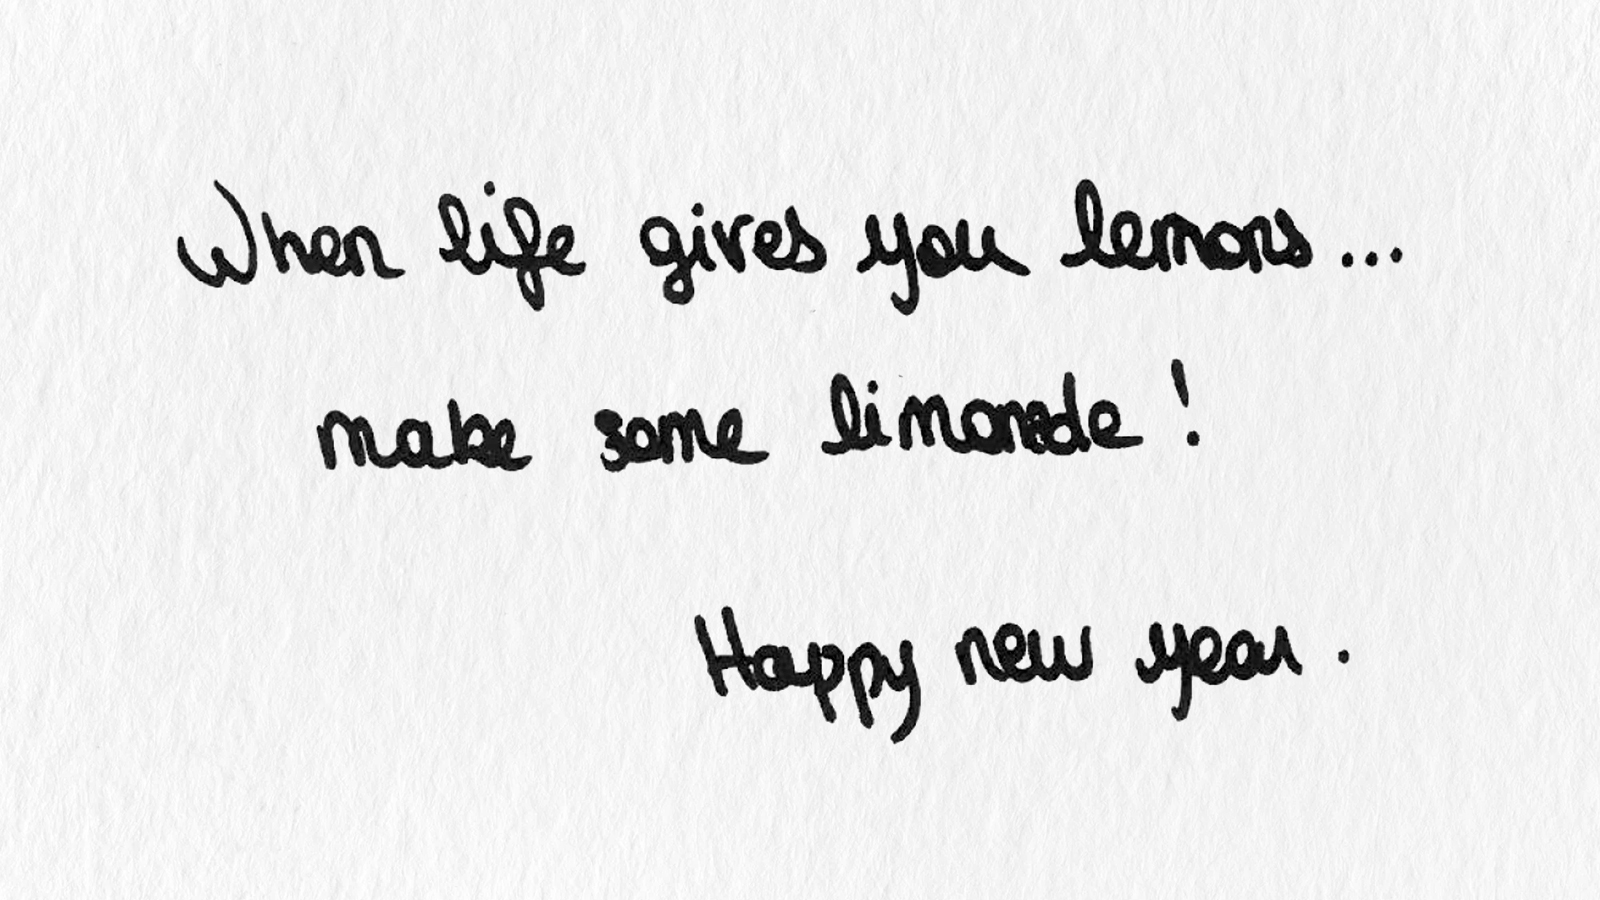 When life gives you lemons...
make some limonade!
Happy new year.